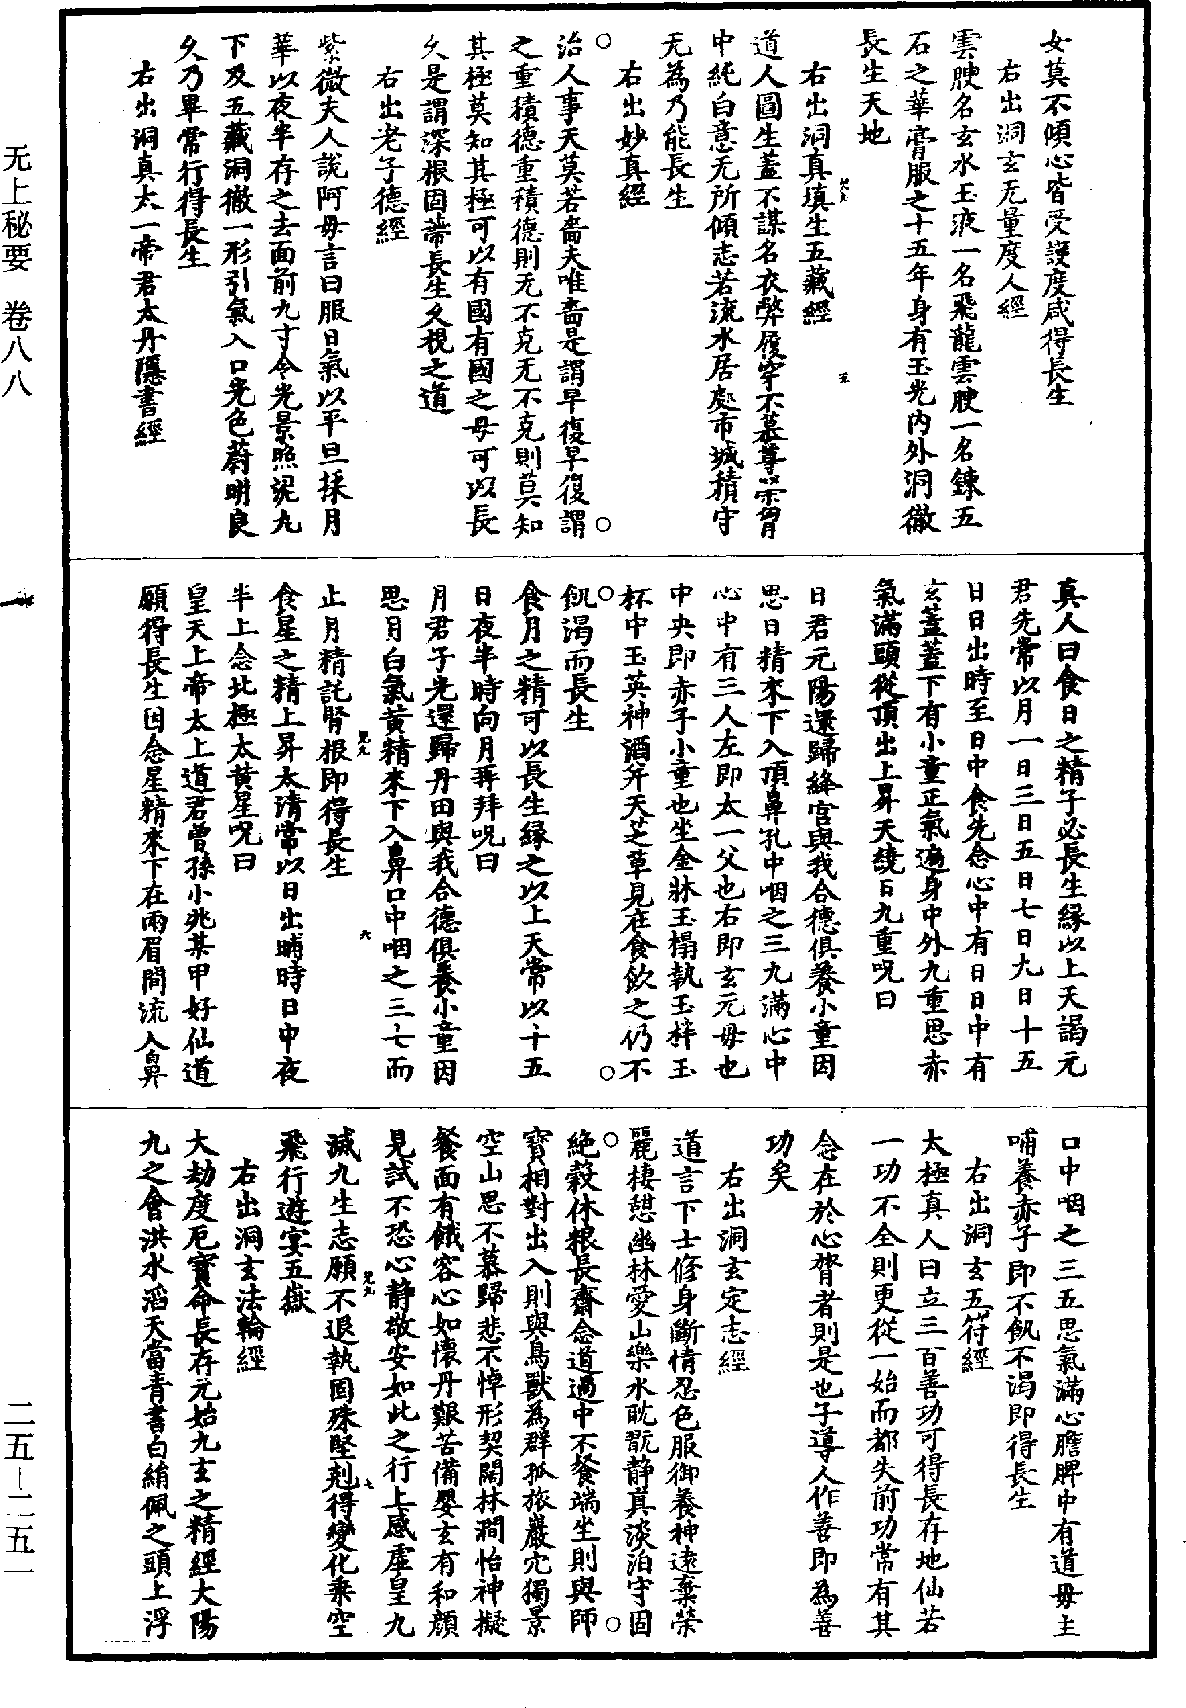 女莫不傾心皆受護度咸得長生
右出洞玄无量度人經
雲腴名玄水玉液一名飛龍雲腴一名鍊五
石之華膏服之十五年身有玉光内外洞徹
長生天地
右出洞真填生五藏經
道人圖生蓋不謀名衣弊履穿不慕尊榮胷
中純白意无所傾志若流水居處市城積守
无為乃能長生
右出妙真經
治人事天莫若嗇夫唯嗇是謂早復早復謂
之重積德重積德則无不克无不克則莫知
其極莫知其極可以有國有國之母可以長
久是謂深根固蔕長生久視之道
右出老子德經
紫微夫人說阿母言曰服日氣以平旦採月
華以夜半存之去面前九寸令光景照泥九
下及五藏洞徹一形引氣入口光色蔚明良
久乃畢常行得長生
右出洞真太一帝君太丹隱書經
真人曰食日之精子必長生緣以上天謁元
君先常以月一日三日五日七日九日十五
日日出時至日中食先念心中有日日中有
玄蓋蓋下有小童正氣遍身中外九重思赤
氣滿頭從頂出上昇天繞百九重呪曰
日君元陽還歸絳宮與我合德俱養小童因
思日精來下入頂鼻孔中咽之三九滿心中
心中有三人左即太一父也右即玄元母也
中央即赤子小童也坐金牀玉榻執玉桙玉
杯中玉英神酒并天芝草見在食飲之仍不
飢渴而長生
食月之精可以長生緣之以上天常以十五
日夜半時向月再拜呪曰
月君子光還歸丹田與我合德俱養小童因
思月白氣黃精來下入鼻口中咽之三七而
止月精託腎根即得長生
食星之精上昇太清常以日出晡時日中夜
半上念北極太黃星呪曰
皇天上帝太上道君曾孫小兆某甲好仙道
願得長生因念星精來下在兩眉間流入鼻
口中咽之三五思氣滿心膽脾中有道母主
哺養赤子即不飢不渴即得長生
右出洞玄五符經
太極真人曰立三百善功可得長存地仙若
一功不全則更從一始而都失前功常有其
念在於心膂者則是也子導人作善即為善
功矣
右出洞玄定志經
道言下士修身斷情忍色服御養神遠棄榮
麗棲憩幽林愛山樂水耽翫静真淡泊守固
絶穀休粮長齋念道過中不餐端坐則與師
寶相對出入則與鳥獸為群孤旅巖穴獨景
空山思不慕歸悲不悼形契闊林澗怡神擬
餐面有餓容心如懷丹艱苦備嬰玄有和顔
見試不恐心静敬安如此之行上感虛皇九
滅九生志願不退執固殊堅剋得變化乘空
飛行遊宴五嶽
右出洞玄法輪經
大劫度厄寶命長存元始九主之精經大陽
九之會洪水滔天當青書白絹佩之頭上浮
无上秘要 卷八八
二五—二五一